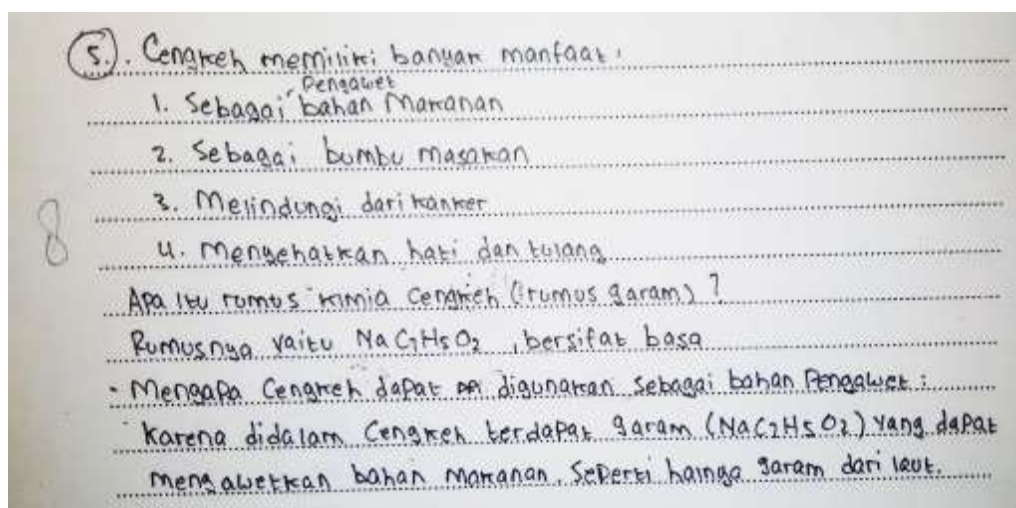 5. Cengkeh memiliki banyak manfaat :
Pengawet
1. Sebagai bahan Makanan
2. Sebagai bumbu masakan
3. Melindungi dari kanker
8
4. Menyehatkan hati dan tulang
Apa itu rumus kimia Cengkeh (rumus garam) ?
Rumusnya yaitu NaC7H5O2 , bersifat basa
- Mengapa Cengkeh dapat digunakan sebagai bahan Pengawet :
Karena didalam Cengkeh terdapat garam (NaC7H5O2) yang dapat
mengawetkan bahan makanan. Seperti halnga garam dari laut.